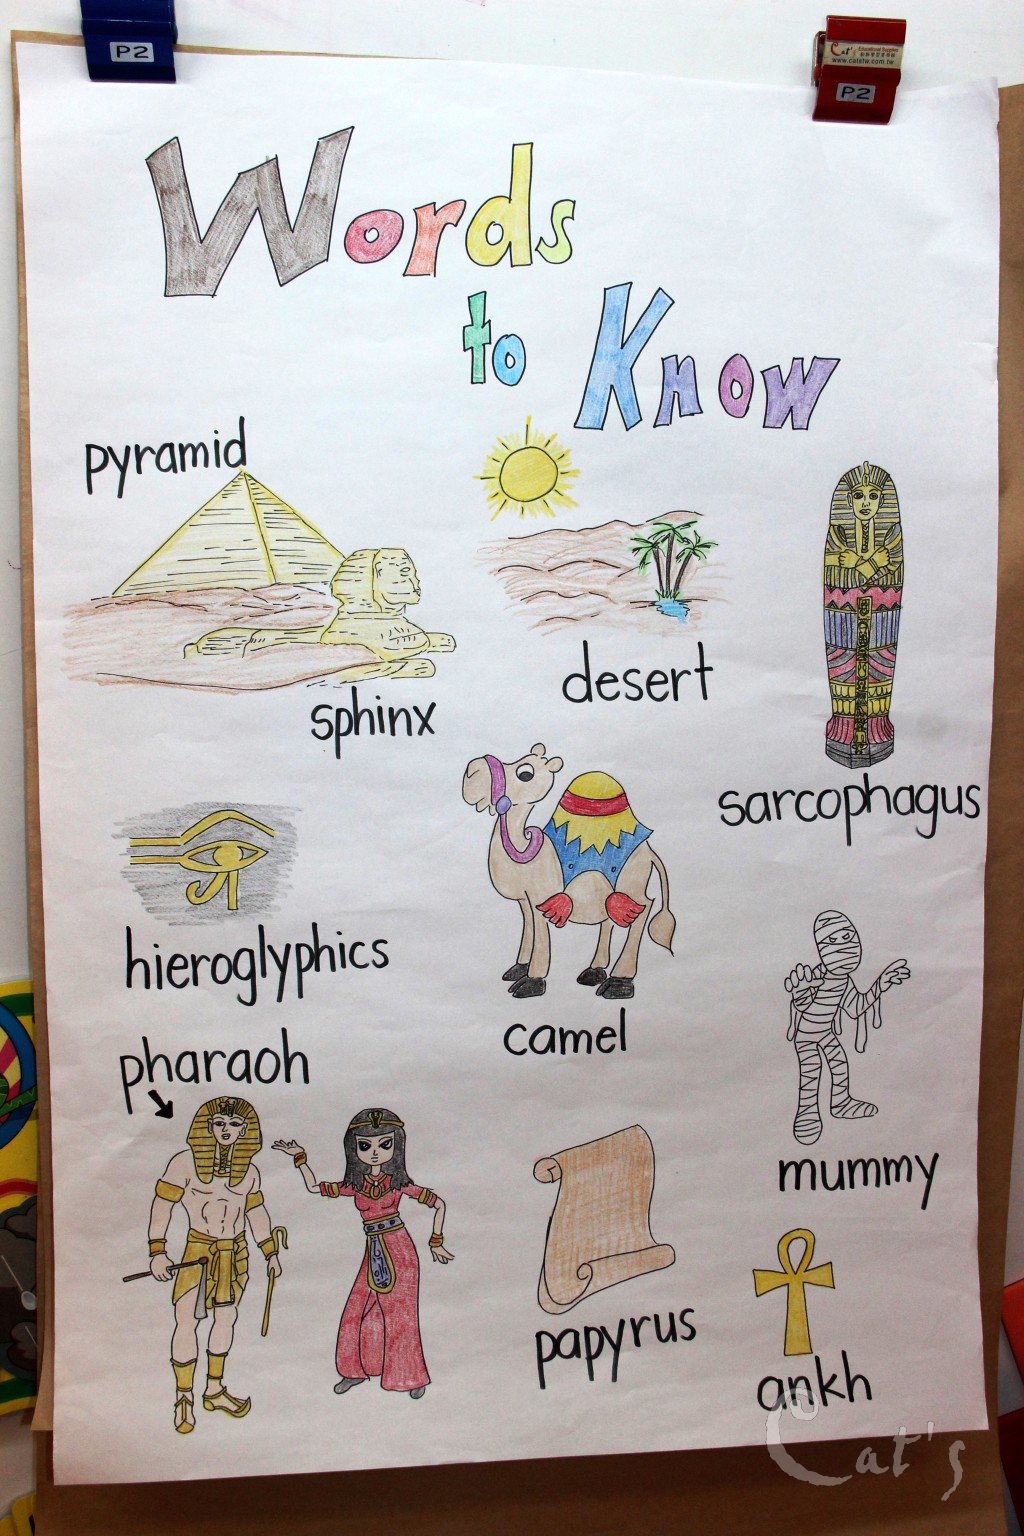 P2
Cat's Educational Supplies
www.catstw.com.tw
P2
Words
to Know
pyramid
sphinx
desert
sarcophagus
hieroglyphics
camel
pharaoh
mummy
papyrus
ankh
Cat's